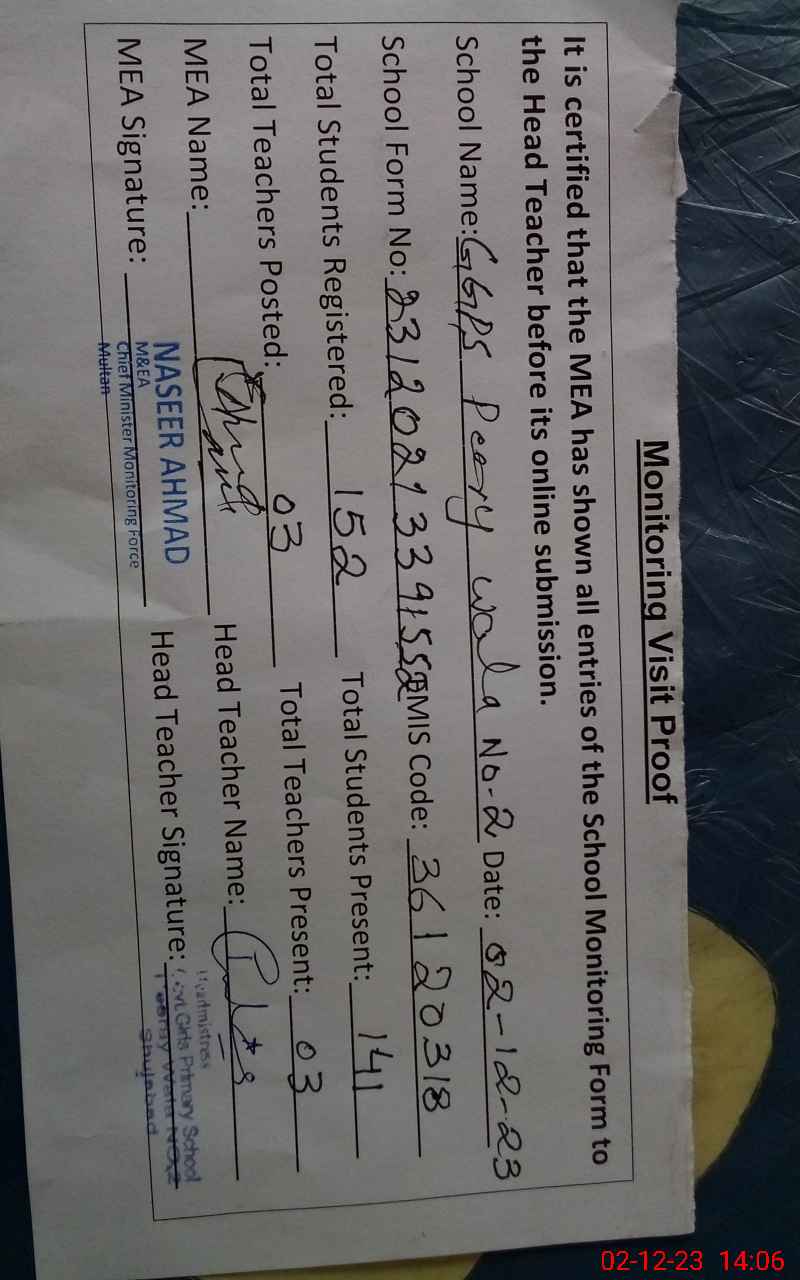 Monitoring Visit Proof
It is certified that the MEA has shown all entries of the School Monitoring Form to
the Head Teacher before its online submission.
School Name: GGPS Peery wala No-2 Date: 02-12-23
School Form No: 23120213391552 EMIS Code: 36120318
Total Students Registered: 152 Total Students Present: 141
Total Teachers Posted: 03 Total Teachers Present: 03
MEA Name: Head Teacher Name:
MEA Signature: Head Teacher Signature:
NASEER AHMAD
M&EA
Chief Minister Monitoring Force
Multan
Headmistress
Govt. Girls Primary School
Peeray Wala NO.2
Shujabad
02-12-23 14:06